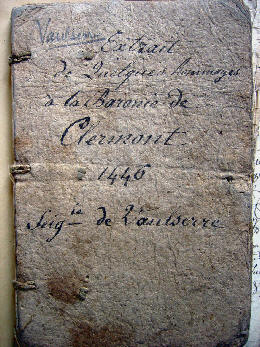 Vaulserre
Extrait
de Quelques hommages
à la Baronie de
Clermont
1446
Seig.rie de Vaulserre